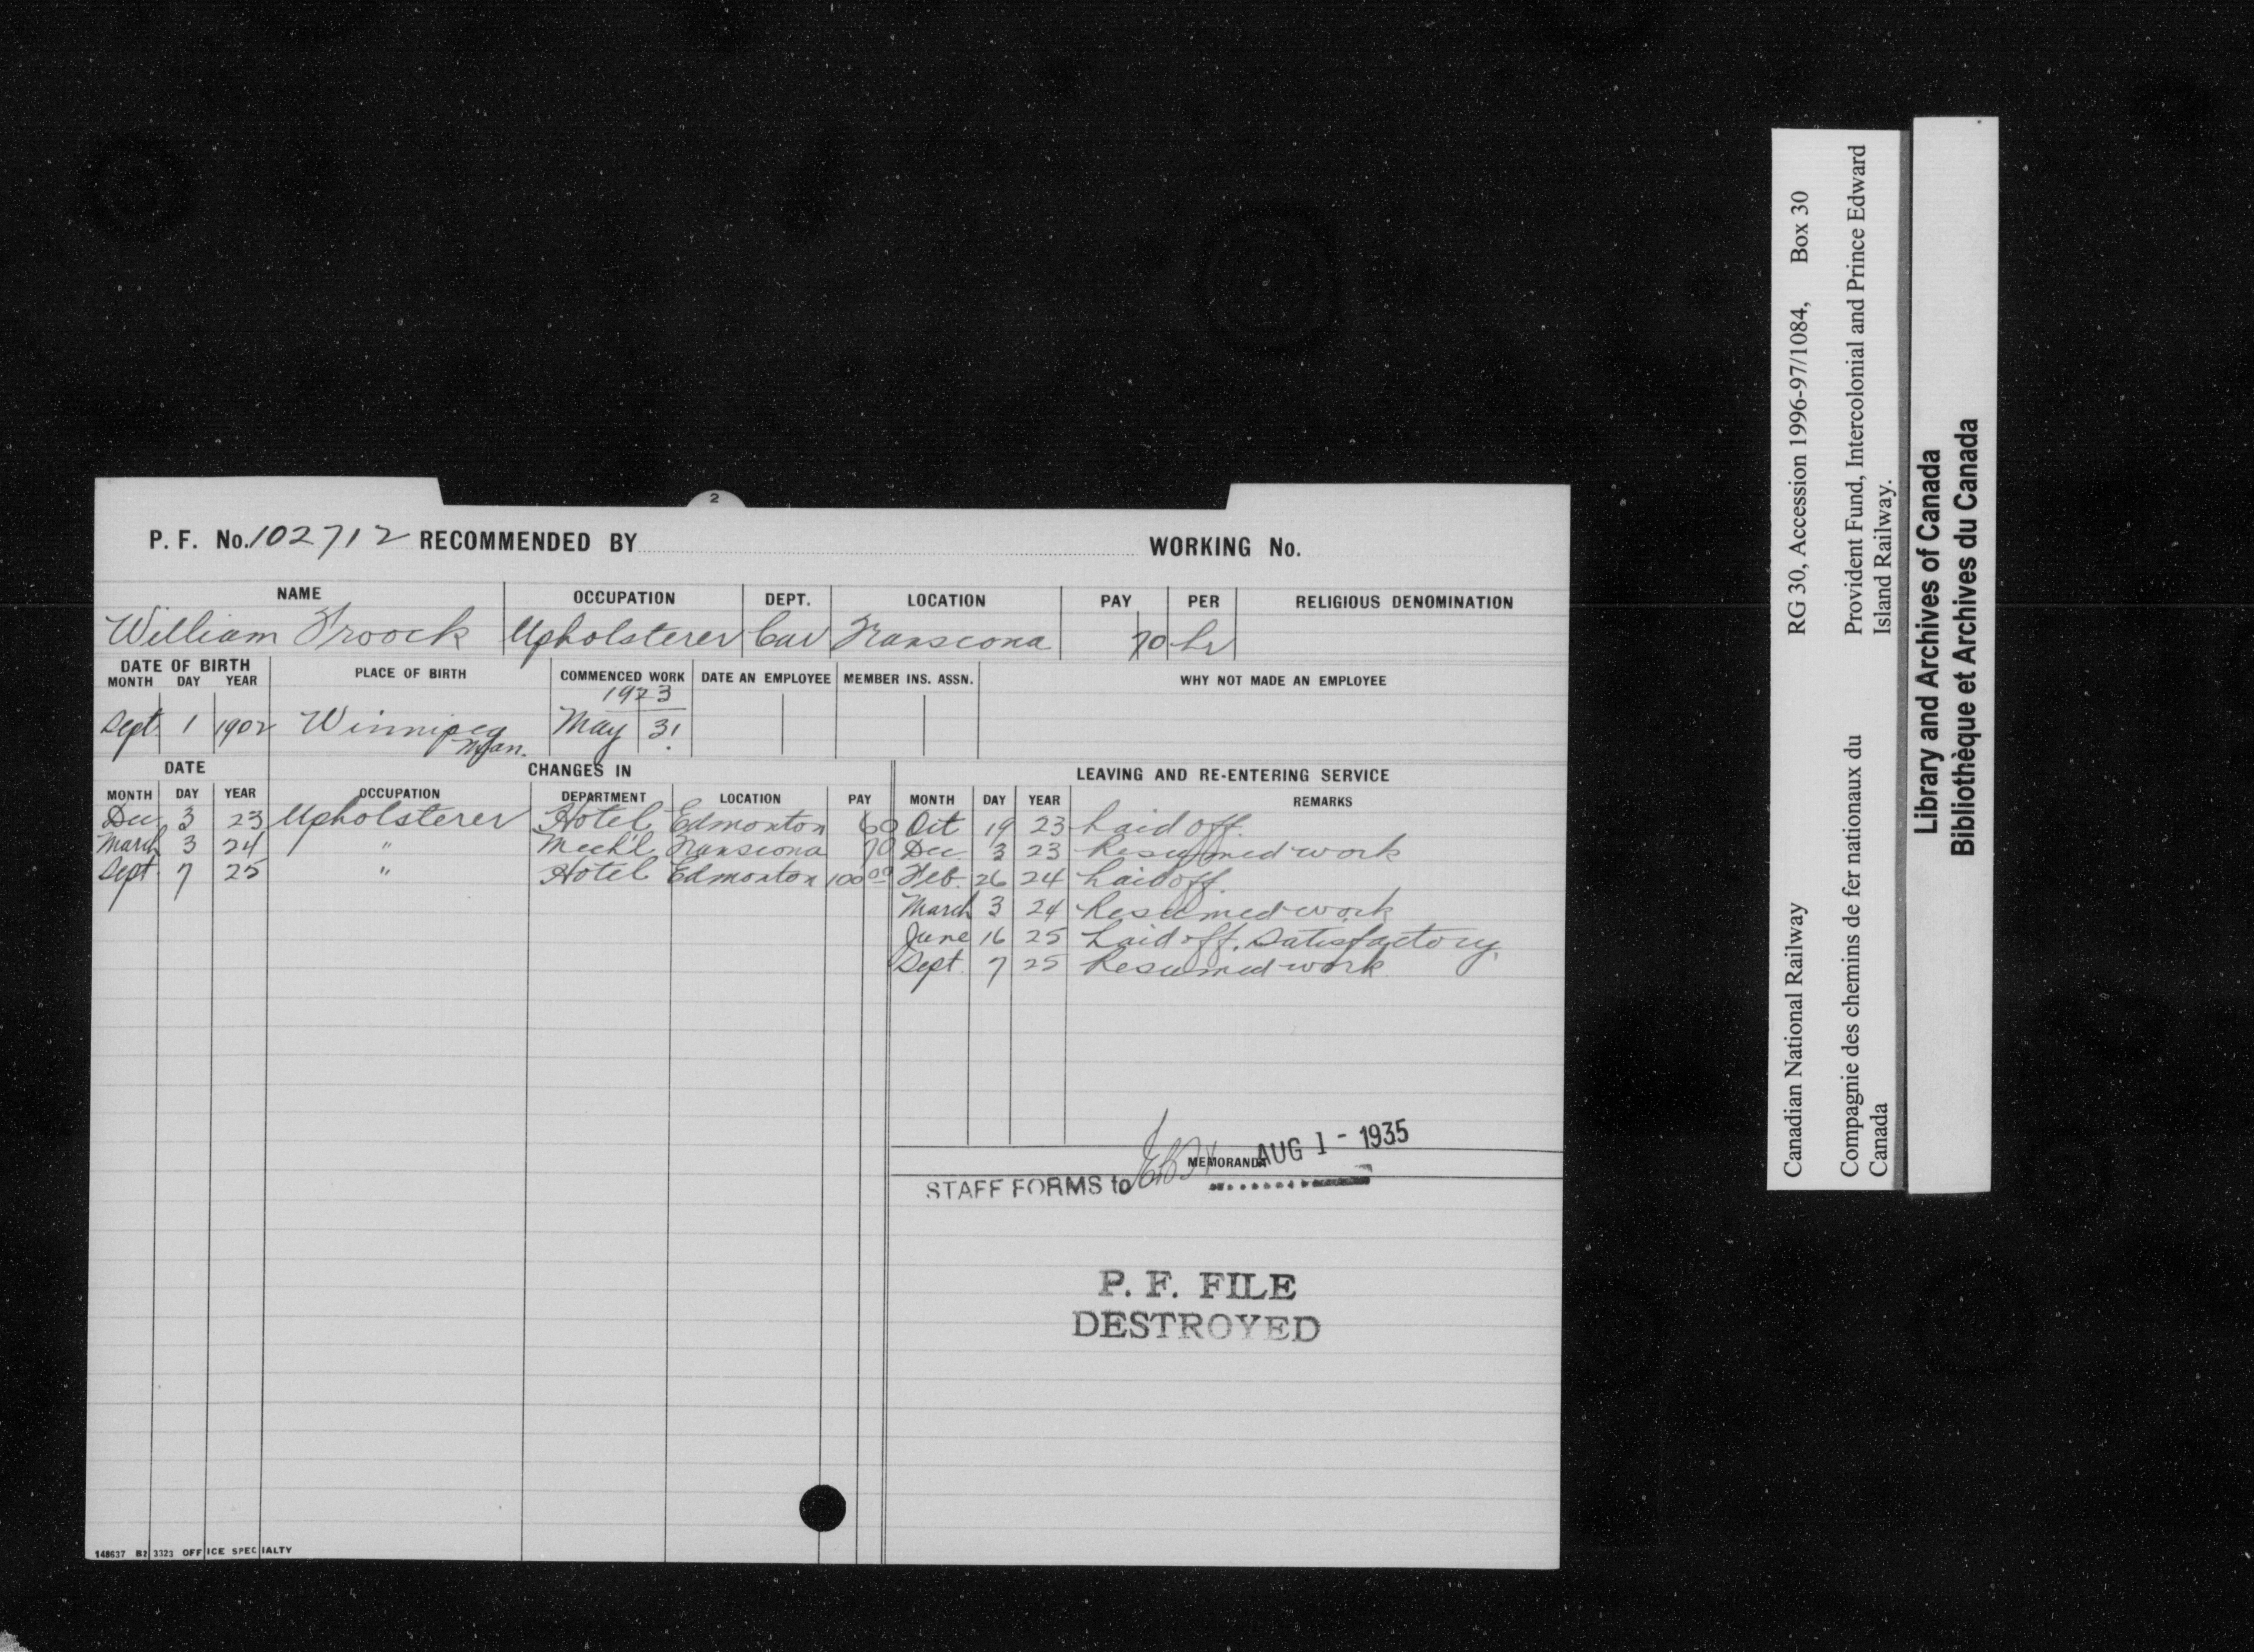 2
P. F. No. 102712 RECOMMENDED BY WORKING No.
NAME OCCUPATION DEPT. LOCATION PAY PER RELIGIOUS DENOMINATION
William Froock Upholsterer Car Transcona 70 hr
DATE OF BIRTH PLACE OF BIRTH COMMENCED WORK DATE AN EMPLOYEE MEMBER INS. ASSN. WHY NOT MADE AN EMPLOYEE
MONTH DAY YEAR
1923
Sept. 1 1902 Winnipeg Man. May 31
DATE CHANGES IN LEAVING AND RE-ENTERING SERVICE
MONTH DAY YEAR OCCUPATION DEPARTMENT LOCATION PAY MONTH DAY YEAR REMARKS
Dec 3 23 Upholsterer Hotel Edmonton 60 Oct 19 23 Laid off.
March 3 24 " Mech'l Transcona 70 Dec. 3 23 Resumed work
Sept. 7 25 " Hotel Edmonton 100 00 Feb. 26 24 Laid off.
March 3 24 Resumed work
June 16 25 Laid off. Satisfactory.
Sept. 7 25 Resumed work
MEMORANDA AUG 1 - 1935
STAFF FORMS to
P. F. FILE
DESTROYED
148637 B2 3323 OFFICE SPECIALTY
Canadian National Railway RG 30, Accession 1996-97/1084, Box 30
Compagnie des chemins de fer nationaux du Provident Fund, Intercolonial and Prince Edward
Canada Island Railway.
Library and Archives of Canada
Bibliothèque et Archives du Canada